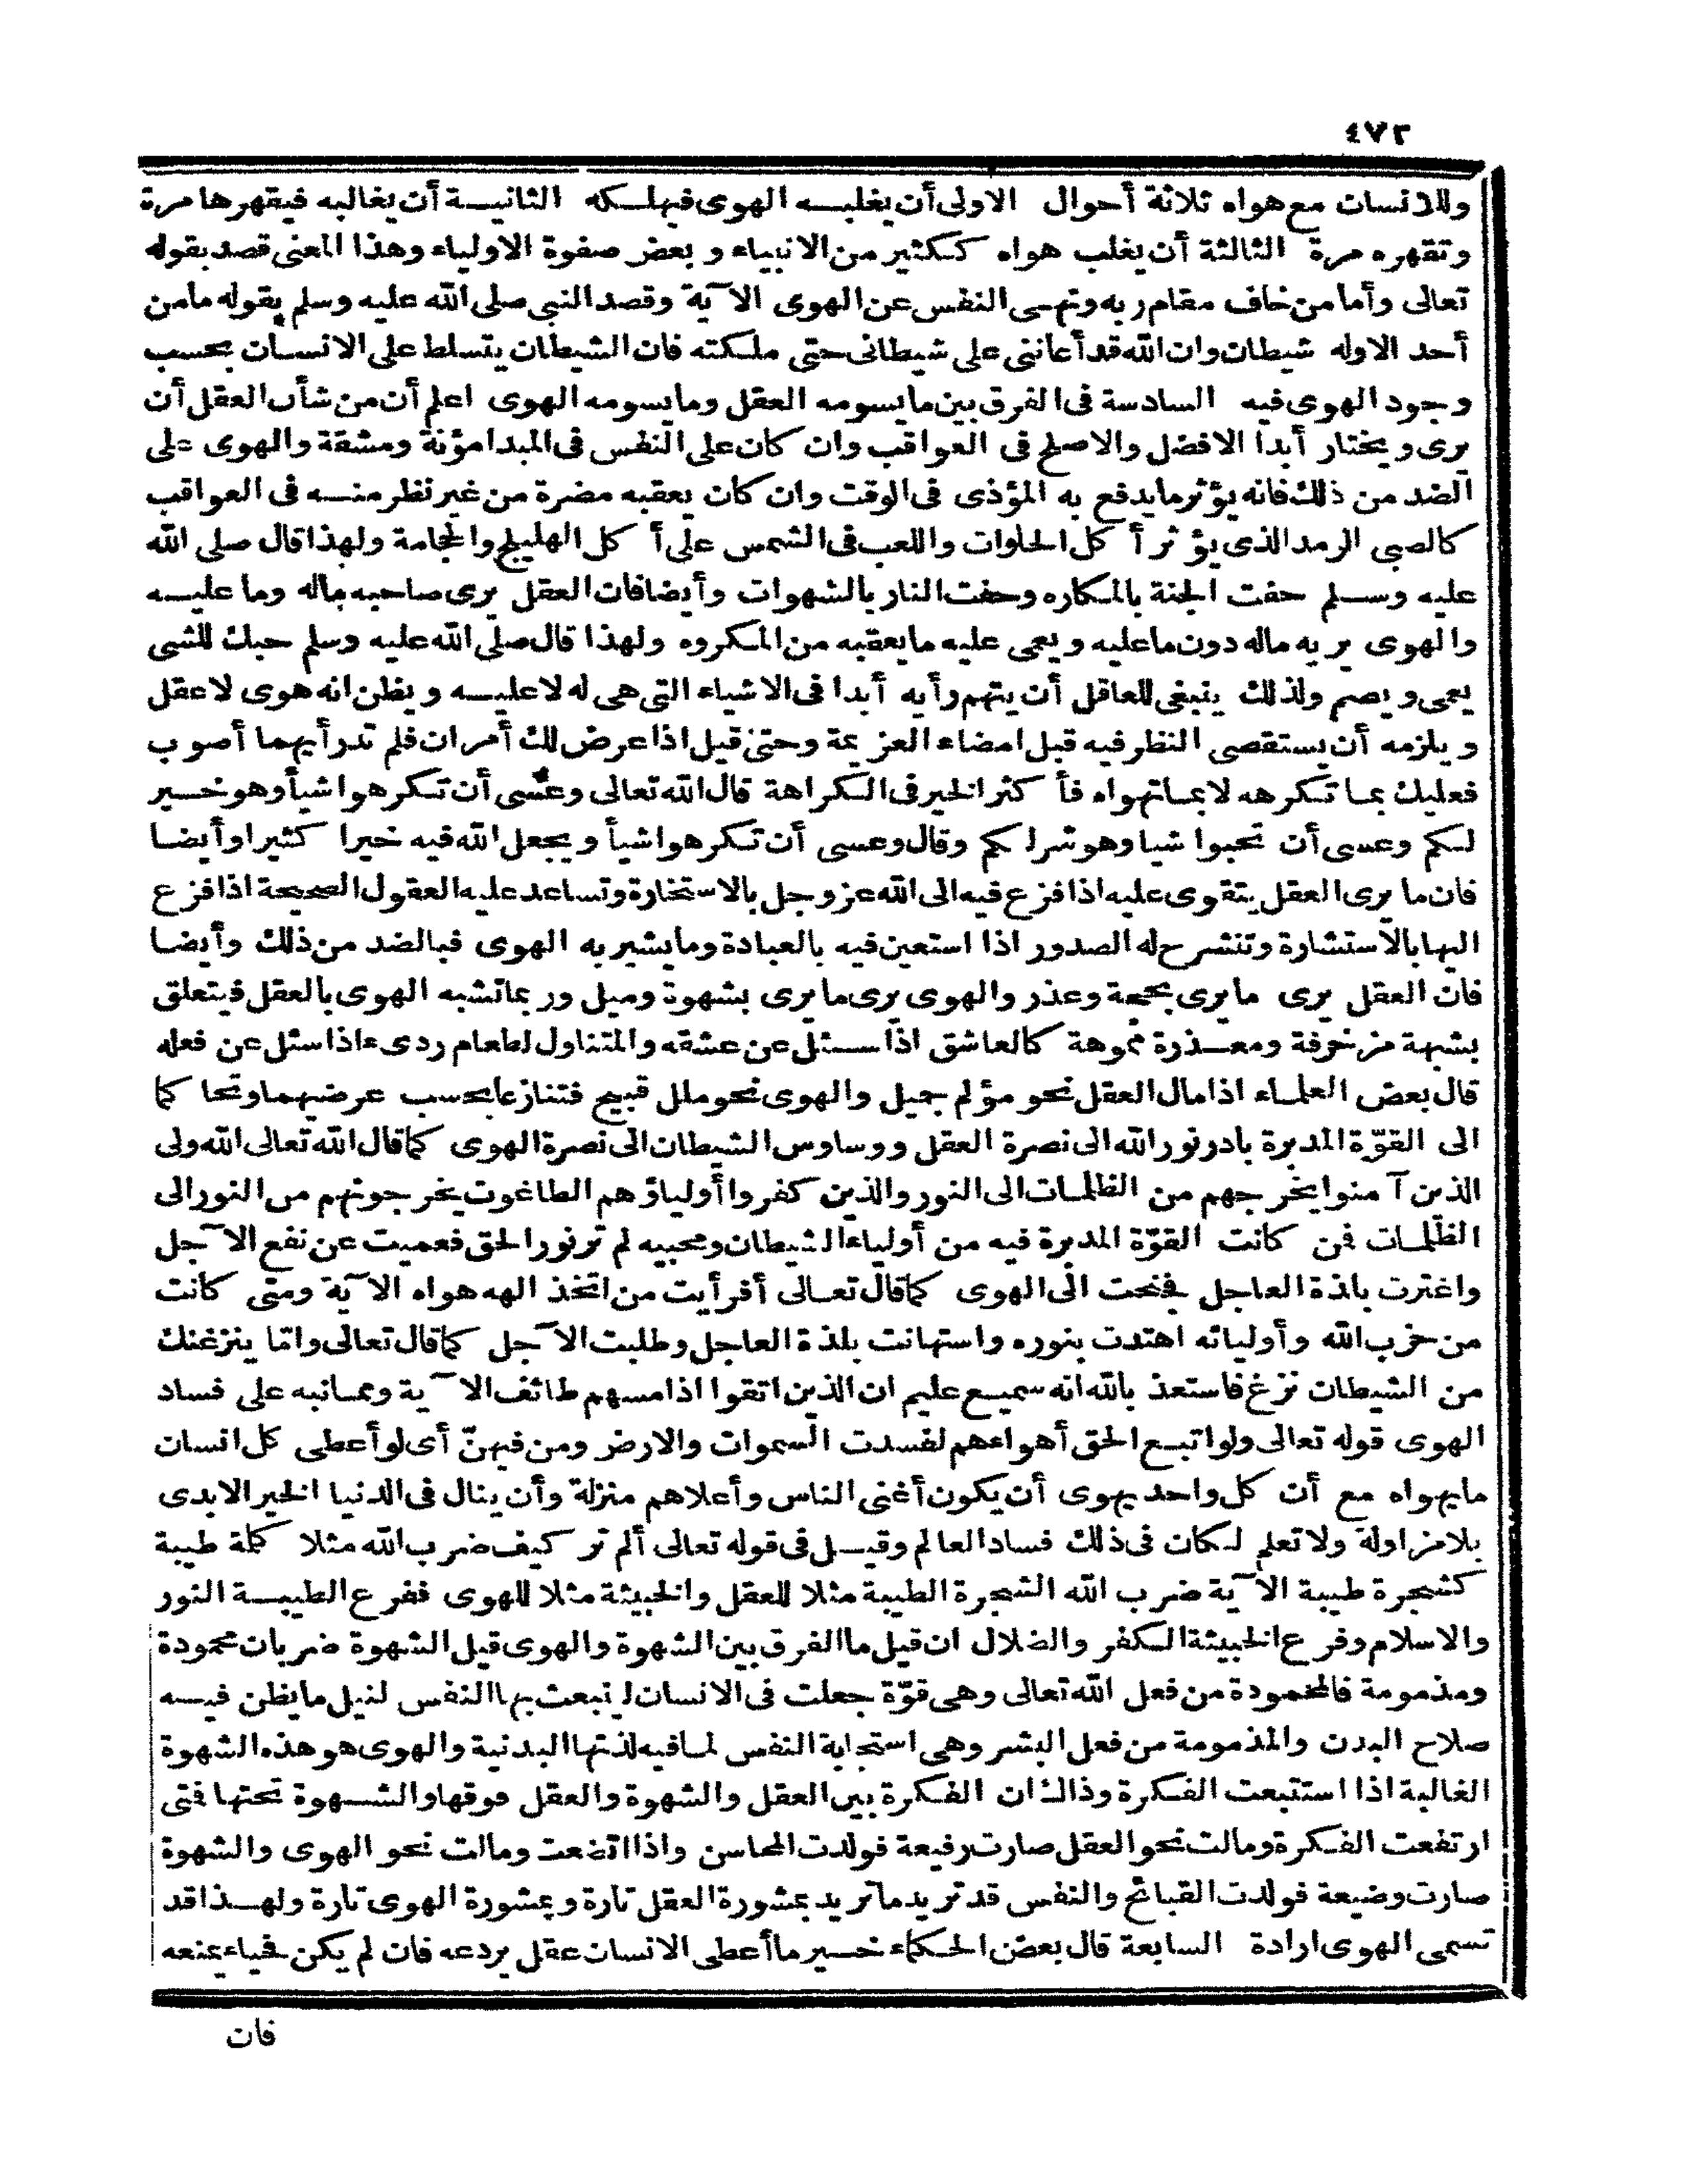 ٤٧٢
وللانسان مع هواه ثلاثة أحوال الاولى أن يغلبه الهوى فيهلكه الثانية أن يغالبه فيقهرها مرة
وتقهره مرة الثالثة أن يغلب هواه ككثير من الانبياء وبعض صفوة الاولياء وهذا المعنى قصد بقوله
تعالى وأما من خاف مقام ربه ونهى النفس عن الهوى الآية وقصد النبي صلى الله عليه وسلم بقوله ما من
أحد الا وله شيطان وان الله قد أعانني على شيطاني حتى ملكته فان الشيطان يتسلط على الانسان بحسب
وجود الهوى فيه السادسة في الفرق بين ما يسومه العقل وما يسومه الهوى اعلم أن من شأن العقل أن
يرى ويختار أبدا الافضل والاصلح في العواقب وان كان على النفس في المبدا مؤنة ومشقة والهوى على
الضد من ذلك فانه يؤثر ما يدفع به المؤذى في الوقت وان كان يعقبه مضرة من غير نظر منه في العواقب
كالصبي الرمد الذى يؤثر أكل الحلوات واللعب في الشمس على أكل الهليلج والحجامة ولهذا قال صلى الله
عليه وسلم حفت الجنة بالمكاره وحفت النار بالشهوات وأيضا فان العقل يرى صاحبه ماله وما عليه
والهوى يريه ماله دون ما عليه ويعمى عليه ما يعقبه من المكروه ولهذا قال صلى الله عليه وسلم حبك للشى
يعمى ويصم ولذلك ينبغي للعاقل أن يتهم رأيه أبدا في الاشياء التى هى له لا عليه ويظن انه هوى لا عقل
ويلزمه أن يستقصى النظر فيه قبل امضاء العزيمة وحتى قيل اذا عرض لك أمران فلم تدر أيهما أصوب
فعليك بما تكرهه لا بما تهواه فأكثر الخير في الكراهة قال الله تعالى وعسى أن تكرهوا شيأ وهو خير
لكم وعسى أن تحبوا شيا وهو شر لكم وقال وعسى أن تكرهوا شيأ ويجعل الله فيه خيرا كثيرا وأيضا
فان ما يرى العقل يتقوى عليه اذا فزع فيه الى الله عز وجل بالاستخارة وتساعد عليه العقول الصحيحة اذا فزع
اليها بالاستشارة وتنشرح له الصدور اذا استعين فيه بالعبادة وما يشير به الهوى فبالضد من ذلك وأيضا
فان العقل يرى ما يرى بحجة وعذر والهوى يرى ما يرى بشهوة وميل وربما تشبه الهوى بالعقل فيتعلق
بشبهة مزخرفة ومعذرة مموهة كالعاشق اذا سئل عن عشقه والمتناول لطعام ردىء اذا سئل عن فعله
قال بعض العلماء اذا مال العقل نحو مؤلم جميل والهوى نحو ملل قبيح فتنازعا بحسب عرضيهما وتحا كما
الى القوّة المدبرة بادر نور الله الى نصرة العقل ووساوس الشيطان الى نصرة الهوى كما قال الله تعالى الله ولى
الذين آمنوا يخرجهم من الظلمات الى النور والذين كفروا أولياؤهم الطاغوت يخرجونهم من النور الى
الظلمات فمن كانت القوّة المدبرة فيه من أولياء الشيطان ومحبيه لم تر نور الحق فعميت عن نفع الآجل
واغترت بلذة العاجل فجنحت الى الهوى كما قال تعالى أفرأيت من اتخذ الهه هواه الآية ومتى كانت
من حزب الله وأوليائه اهتدت بنوره واستهانت بلذة العاجل وطلبت الآجل كما قال تعالى وامّا ينزغنك
من الشيطان نزغ فاستعذ بالله انه سميع عليم ان الذين اتقوا اذا مسهم طائف الآية ومما نبه على فساد
الهوى قوله تعالى ولو اتبع الحق أهواءهم لفسدت السموات والارض ومن فيهنّ أى لو أعطى كل انسان
ما يهواه مع أن كل واحد يهوى أن يكون أغنى الناس وأعلاهم منزلة وأن ينال في الدنيا الخير الابدى
بلا مزاولة ولا تعلم لكان في ذلك فساد العالم وقيل في قوله تعالى ألم تر كيف ضرب الله مثلا كلة طيبة
كشجرة طيبة الآية ضرب الله الشجرة الطيبة مثلا للعقل والخبيثة مثلا للهوى ففرع الطيبة النور
والاسلام وفرع الخبيثة الكفر والضلال ان قيل ما الفرق بين الشهوة والهوى قيل الشهوة ضربان محمودة
ومذمومة فالمحمودة من فعل الله تعالى وهى قوّة جعلت في الانسان لينبعث بها النفس لنيل ما يظن فيه
صلاح البدن والمذمومة من فعل البشر وهى استجابة النفس لما فيه لذتها البدنية والهوى هو هذه الشهوة
الغالبة اذا استتبعت الفكرة وذاك ان الفكرة بين العقل والشهوة والعقل فوقها والشهوة تحتها فتى
ارتفعت الفكرة ومالت نحو العقل صارت رفيعة فولدت المحاسن واذا اتضعت ومالت نحو الهوى والشهوة
صارت وضيعة فولدت القبائح والنفس قد تريد ما تريد بمشورة العقل تارة وبمشورة الهوى تارة ولهذا قد
تسمى الهوى ارادة السابعة قال بعض الحكماء خير ما أعطى الانسان عقل يردعه فان لم يكن فحياء يمنعه
فان